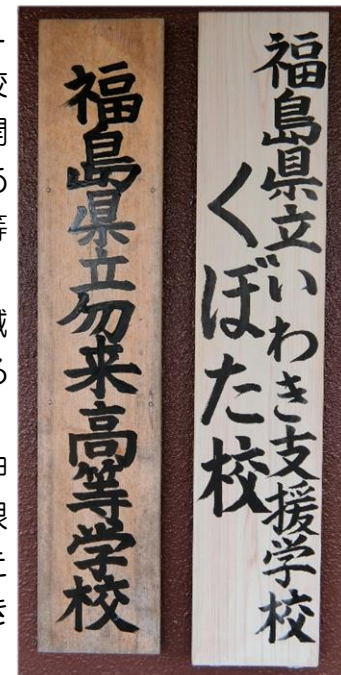 福島県立いわき支援学校
くぼた校
福島県立勿来高等学校